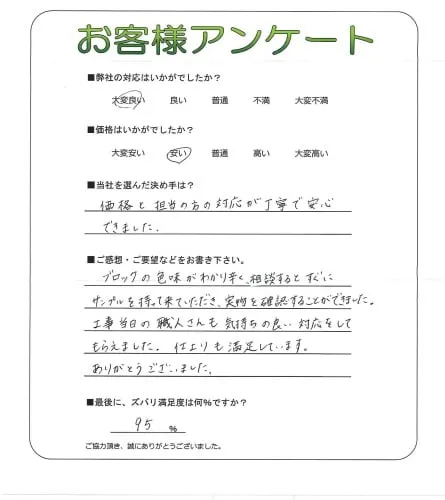 お客様アンケート
■弊社の対応はいかがでしたか？
大変良い 良い 普通 不満 大変不満
■価格はいかがでしたか？
大変安い 安い 普通 高い 大変高い
■当社を選んだ決め手は？
価格と担当の方の対応が丁寧で安心
できました。
■ご感想・ご要望などをお書き下さい。
ブロックの色味がわかり辛く、相談するとすぐに
サンプルを持って来ていただき、実物を確認することができました。
工事当日の職人さんも気持ちの良い対応をして
もらえました。仕上りも満足しています。
ありがとうございました。
■最後に、ズバリ満足度は何%ですか？
95 %
ご協力頂き、誠にありがとうございました。